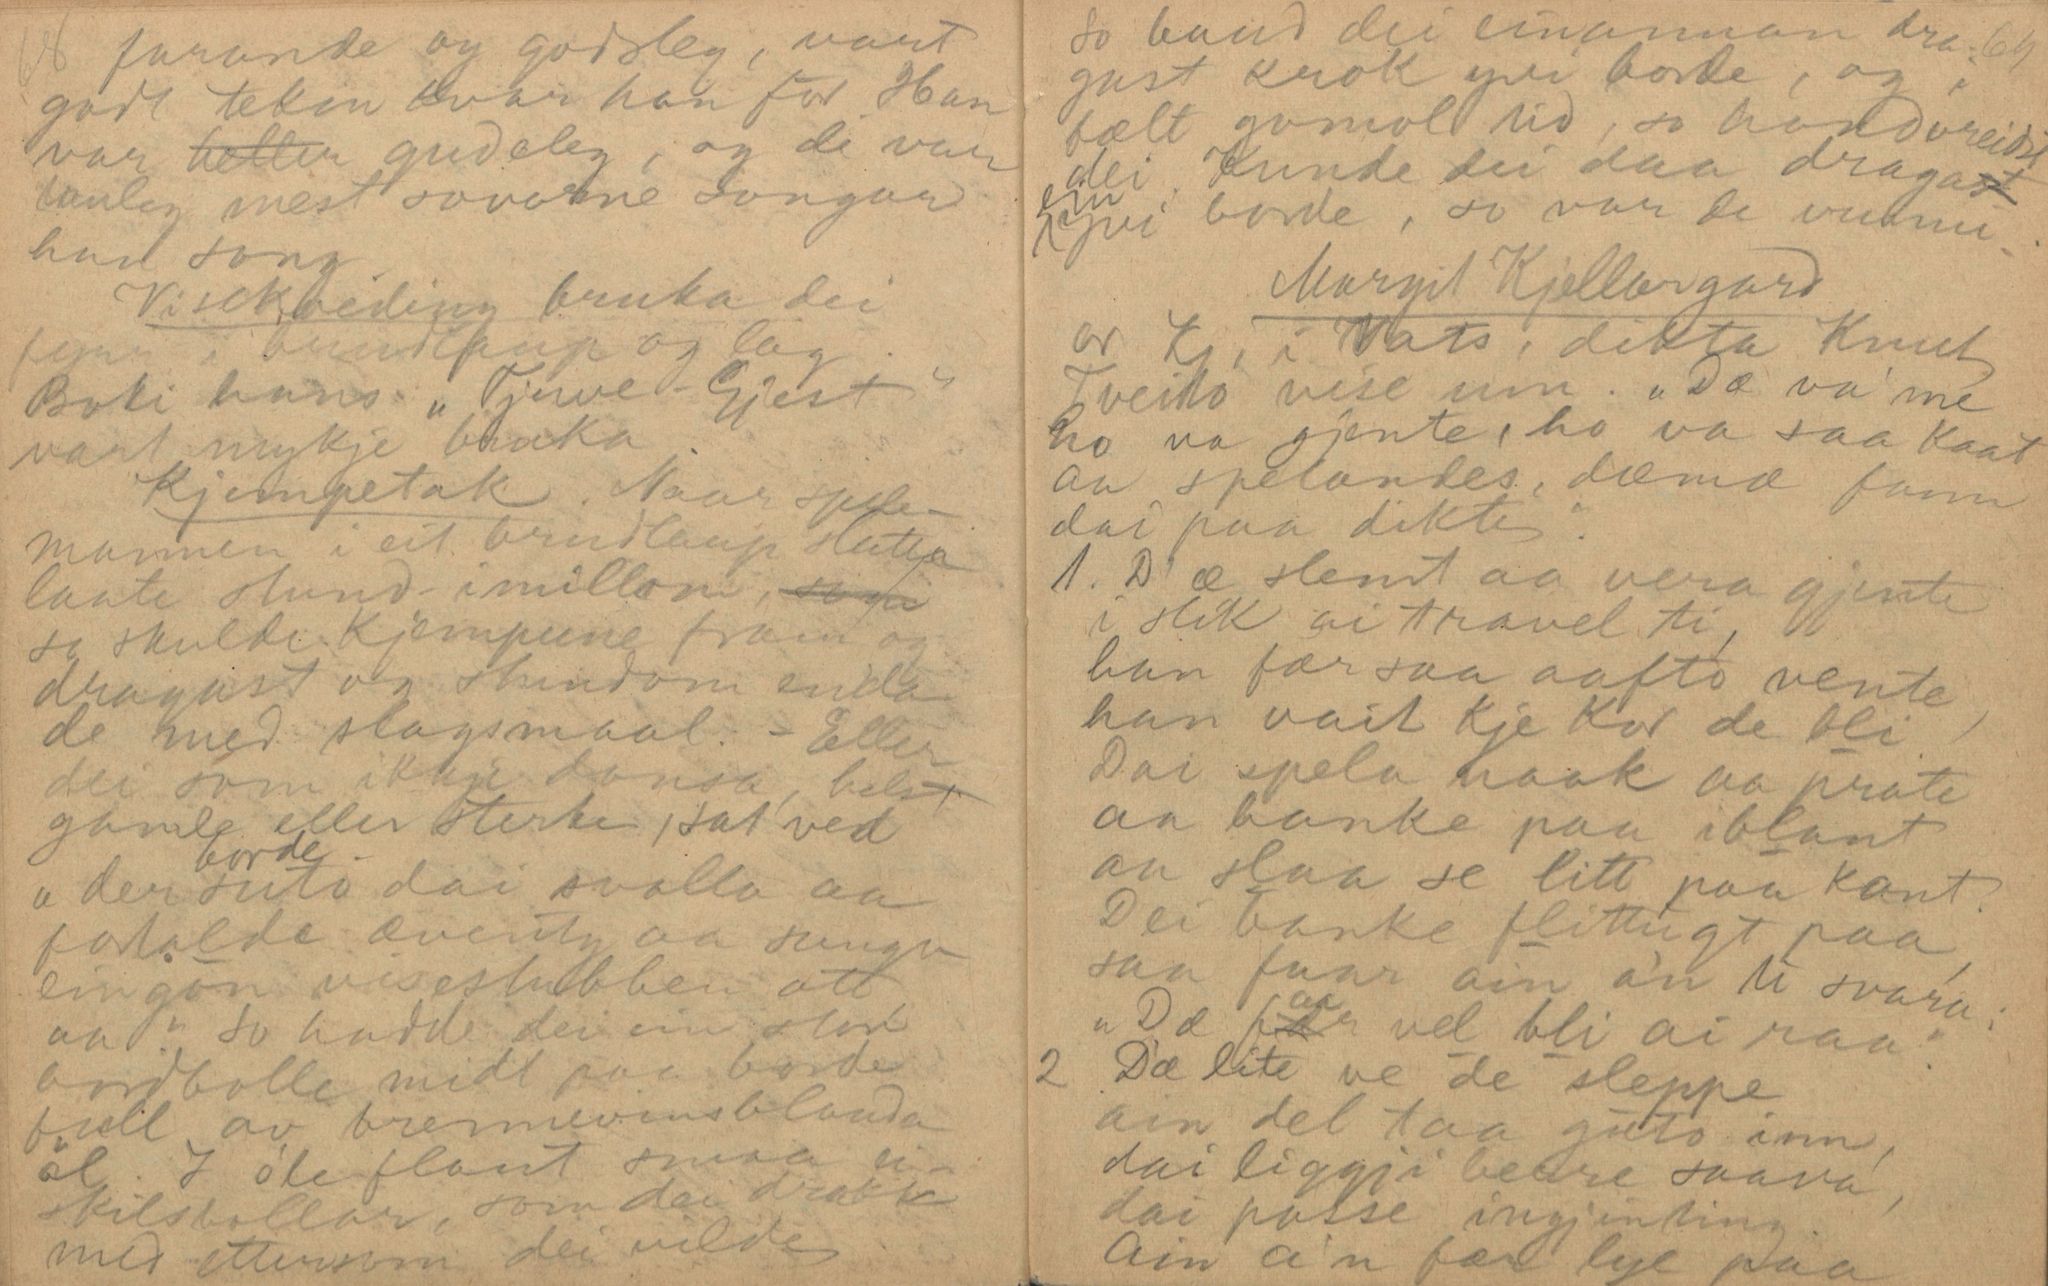 68 farande og godsleg, vart
godt teken kvar han for Han
var heller gudeleg, og de var
vanleg mest sovorne songar
han song.
Visekveding bruka dei
fyrr i brudlaup og lag.
Boki hans "Tjuve-Gjest"
vart mykje bruka.
Kjempetak. Naar spele-
mannen i eit brudlaup slutta
laate stund-imillom,
so skulde kjempune fram og
dragast og stundom enda
de med slagsmaal. - Eller
dei som ikkje dansa, helst
gamle eller sterke, sat ved
borde
"der suto dai svalla aa
fortalde æventy aa sunge
eingon visestubben att
aa". So hadde dei ein stor
bordbolle midt paa borde
full av brennevinsblanda
öl. I öle flaut smaa ei-
skilsbollar, som dei drakk
med ettersom dei vilde
69
So baud dei einannan dra-
gast krok yvi borde, og i
fælt gomol tid, so handvreidst
dei. Kunde dei daa draga
ein
yvi borde, so var de vunni.
Margit Kjellargard
av Kj, i Vats, dikta Knut
Tveito vise um. "Dæ va' me
ho va gjente, ho va saa kaat
aa spelandes, dæmæ fann
dai paa dikte".
1. D'æ slemt aa vera gjente
i slik ai travel ti,
han fær saa aafto vente,
han vait kje kor de bli
Dai spela naak aa prate
aa banke paa iblant
aa slaa se litt paa kant.
Dei banke flittugt paa,
saa faar ain a'n ti svara:
aa
"Dæ får vel bli ai raa".
2 Dæ lite ve de sleppe
ain del taa guto inn,
dai liggji beare saava,
dai passe ingjenting.
Ain a'n fær lye paa